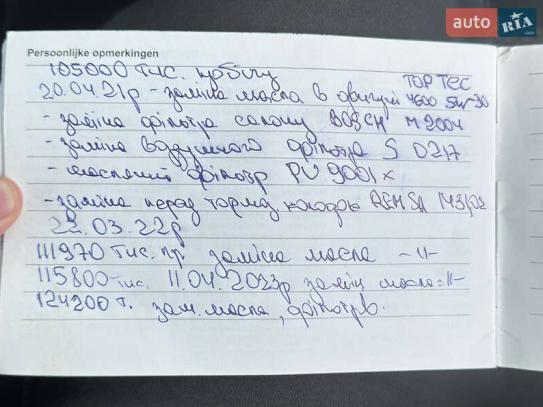 auto RIA.com
Persoonlijke opmerkingen
105000 тис. пробігу
20.04.21р - заміна масла в двигуні TOP TEC 4600 5W-30
- заміна фільтра салону BOSCH M2004
- заміна воздушного фільтра S 0217
- масляний фільтр PU 9001 x
- заміна перед тормоз колодок REMSA
22.03.22р
111970 тис. пр. заміна масла -11-
115800 тис. 11.04.2023р заміна масла -11-
124200 т. зам. масла, фільтрів.